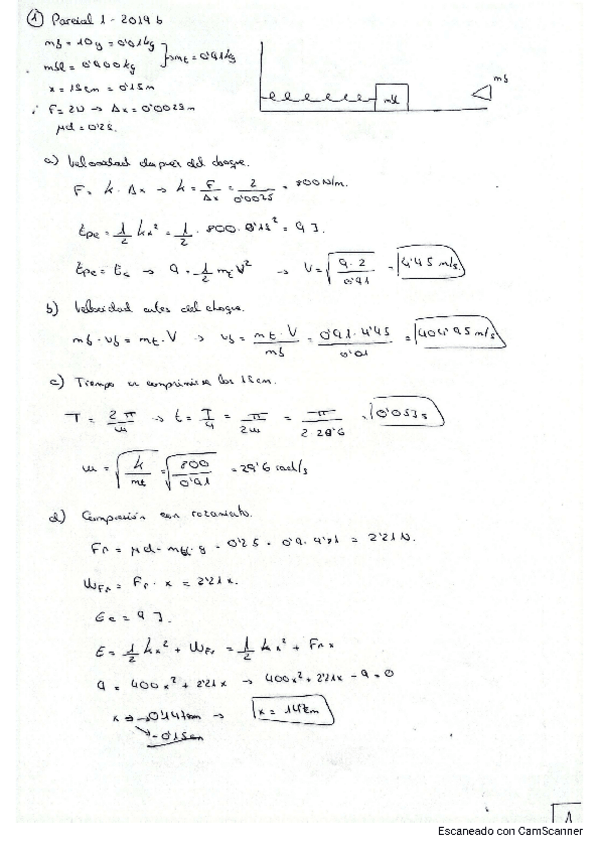 ① Parcial 1 - 2019 b
mb = 10g = 0'01kg
mbl = 0'900kg } → mt = 0'91kg
x = 15cm = 0'15m
F = 2N → Δx = 0'0025m
μd = 0'25.
mbl
mb
a) Velocidad después del choque.
F = k · Δx → k = F/Δx = 2/0'0025 = 800N/m.
Epe = 1/2 kx² = 1/2 · 800 · 0'15² = 9 J.
Epe = Ec → 9 = 1/2 mt V² → V = √(9·2/0'91) = 4'45 m/s
b) Velocidad antes del choque.
mb · vb = mt · V → vb = mt · V/mb = 0'91 · 4'45/0'01 = 404'95 m/s
c) Tiempo en comprimirse los 15cm.
T = 2π/ω → t = T/4 = π/2ω = π/2·29'6 = 0'053s
ω = √(k/mt) = √(800/0'91) = 29'6 rad/s
d) Compresión con rozamiento.
Fr = μd · mt · g = 0'25 · 0'9 · 9'81 = 2'21N.
WFr = Fr · x = 2'21x.
Ec = 9 J.
E = 1/2 kx² + WFr = 1/2 kx² + Fr x
9 = 400x² + 2'21x → 400x² + 2'21x - 9 = 0
x → 0'147cm → x = 147cm
→ -0'15cm
1
Escaneado con CamScanner